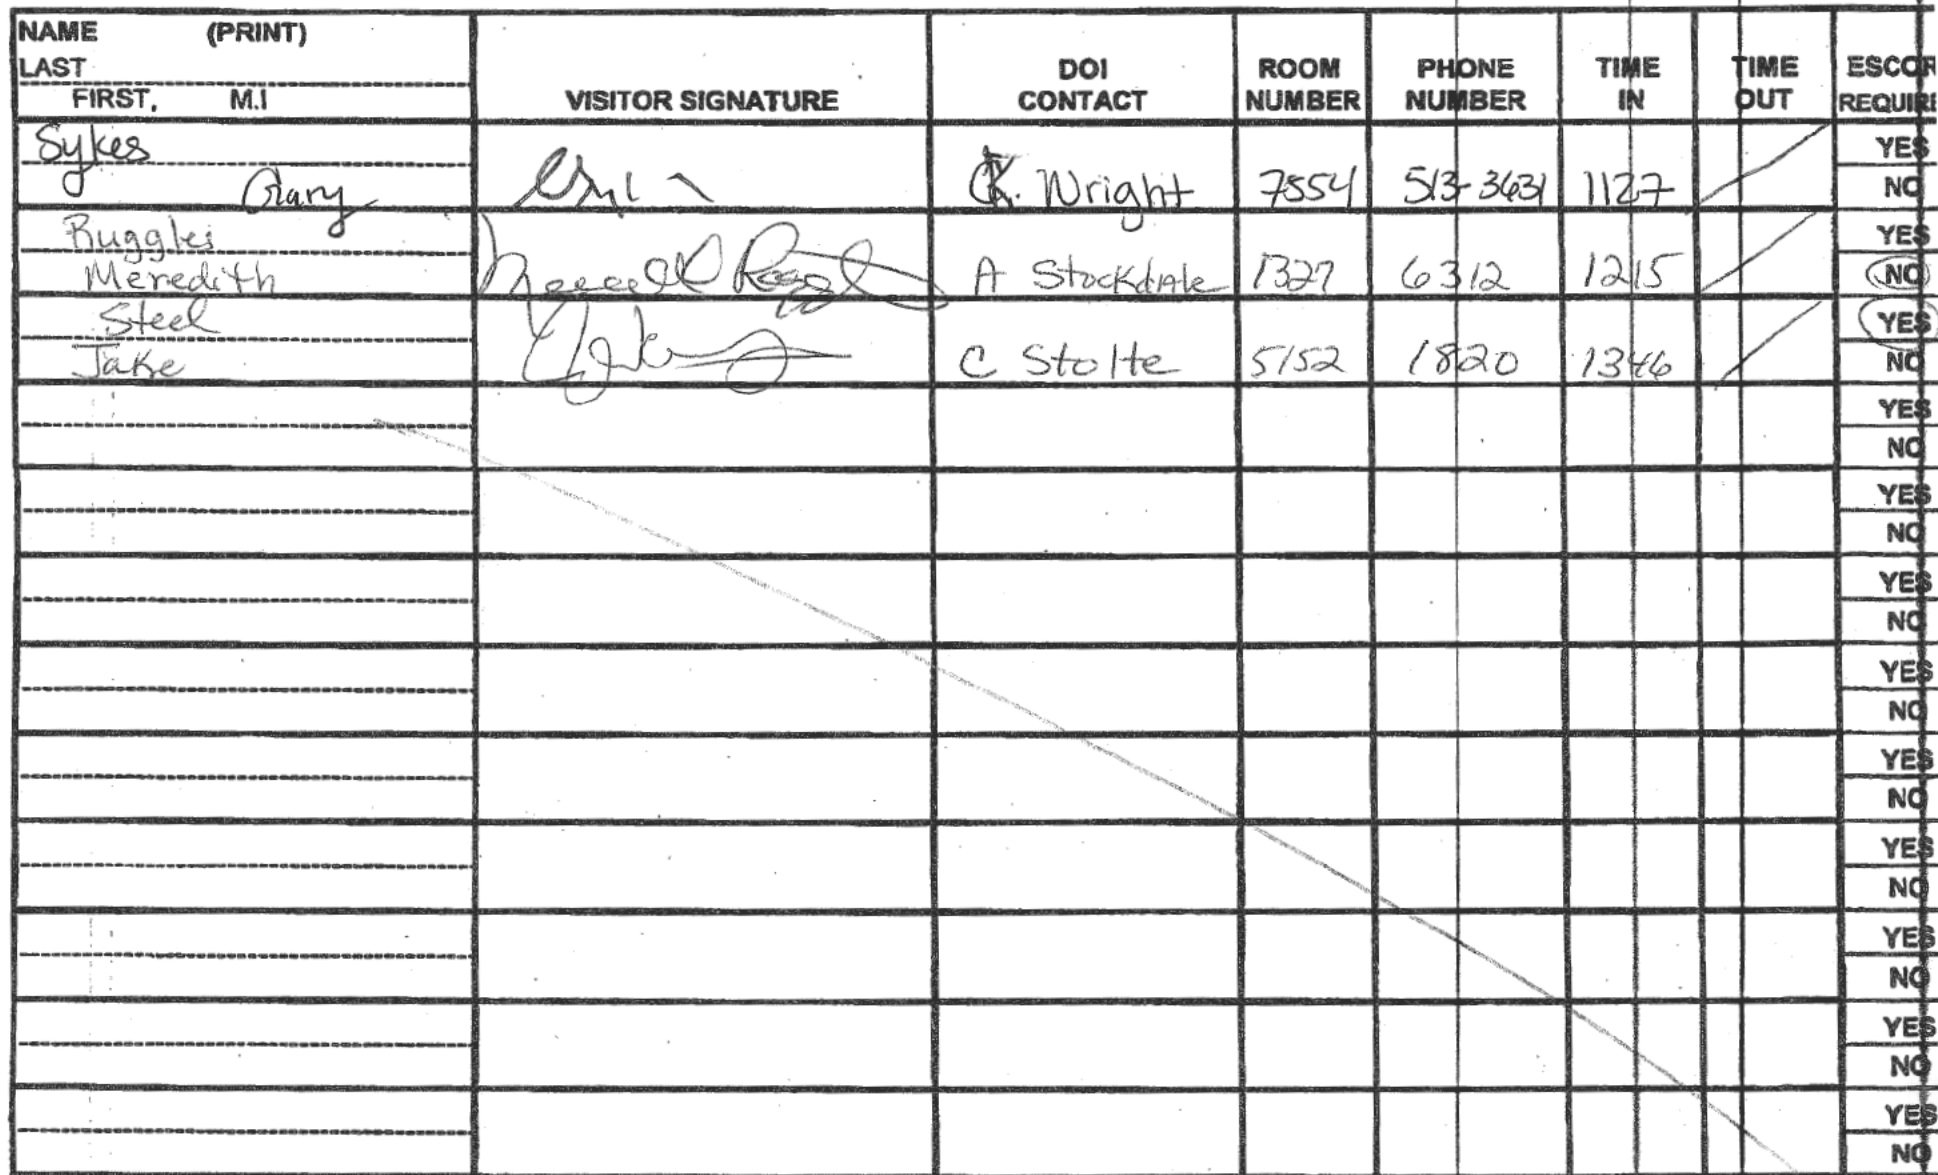 NAME (PRINT)
LAST
FIRST, M.I
VISITOR SIGNATURE
DOI CONTACT
ROOM NUMBER
PHONE NUMBER
TIME IN
TIME OUT
ESCOR
REQUIRE
Sykes
Gary
K. Wright 7554 513-3631 1127
YES
NO
Ruggles
Meredith
A Stockdale 1327 6312 1215
YES
NO
Steel
Jake
C Stolte 5152 1820 1346
YES
NO
YES
NO
YES
NO
YES
NO
YES
NO
YES
NO
YES
NO
YES
NO
YES
NO
YES
NO